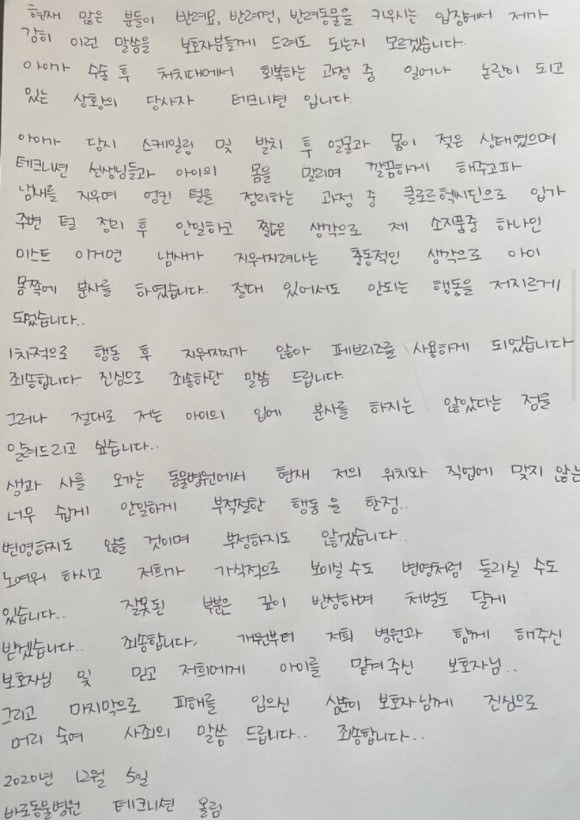 현재 많은 분들이 반려묘, 반려견, 반려동물을 키우시는 입장에서 제가
감히 이런 말씀을 보호자분들께 드려도 되는지 모르겠습니다.
아이가 수술 후 처치대에서 회복하는 과정 중 일어나 논란이 되고
있는 상황의 당사자 테크니션 입니다.
아이가 당시 스케일링 및 발치 후 얼굴과 몸이 젖은 상태였으며
테크니션 선생님들과 아이의 몸을 말리며 깔끔하게 해주고파
냄새를 지우며 엉킨 털을 정리하는 과정 중 클로르헥시딘으로 입가
주변 털 정리 후 안일하고 짧은 생각으로 제 소지품중 하나인
미스트 이거면 냄새가 지워지려나는 충동적인 생각으로 아이
몸쪽에 분사를 하였습니다. 절대 있어서도 안되는 행동을 저지르게
되었습니다..
1차적으로 행동 후 지워지지가 않아 페브리즈를 사용하게 되었습니다
죄송합니다 진심으로 죄송하단 말씀 드립니다.
그러나 절대로 저는 아이의 입에 분사를 하지는 않았다는 점을
알려드리고 싶습니다..
생과 사를 오가는 동물병원에서 현재 저의 위치와 직업에 맞지 않는
너무 쉽게 안일하게 부적절한 행동을 한점..
변명하지도 않을 것이며 부정하지도 않겠습니다..
노여워 하시고 저희가 가식적으로 보이실 수도 변명처럼 들리실 수도
있습니다.. 잘못된 부분은 깊이 반성하며 처벌도 달게
받겠습니다.. 죄송합니다. 개원부터 저희 병원과 함께 해주신
보호자님 및 믿고 저희에게 아이를 맡겨주신 보호자님..
그리고 마지막으로 피해를 입으신 심쿵이 보호자님께 진심으로
머리 숙여 사죄의 말씀 드립니다.. 죄송합니다..
2020년 12월 5일
바로동물병원 테크니션 올림